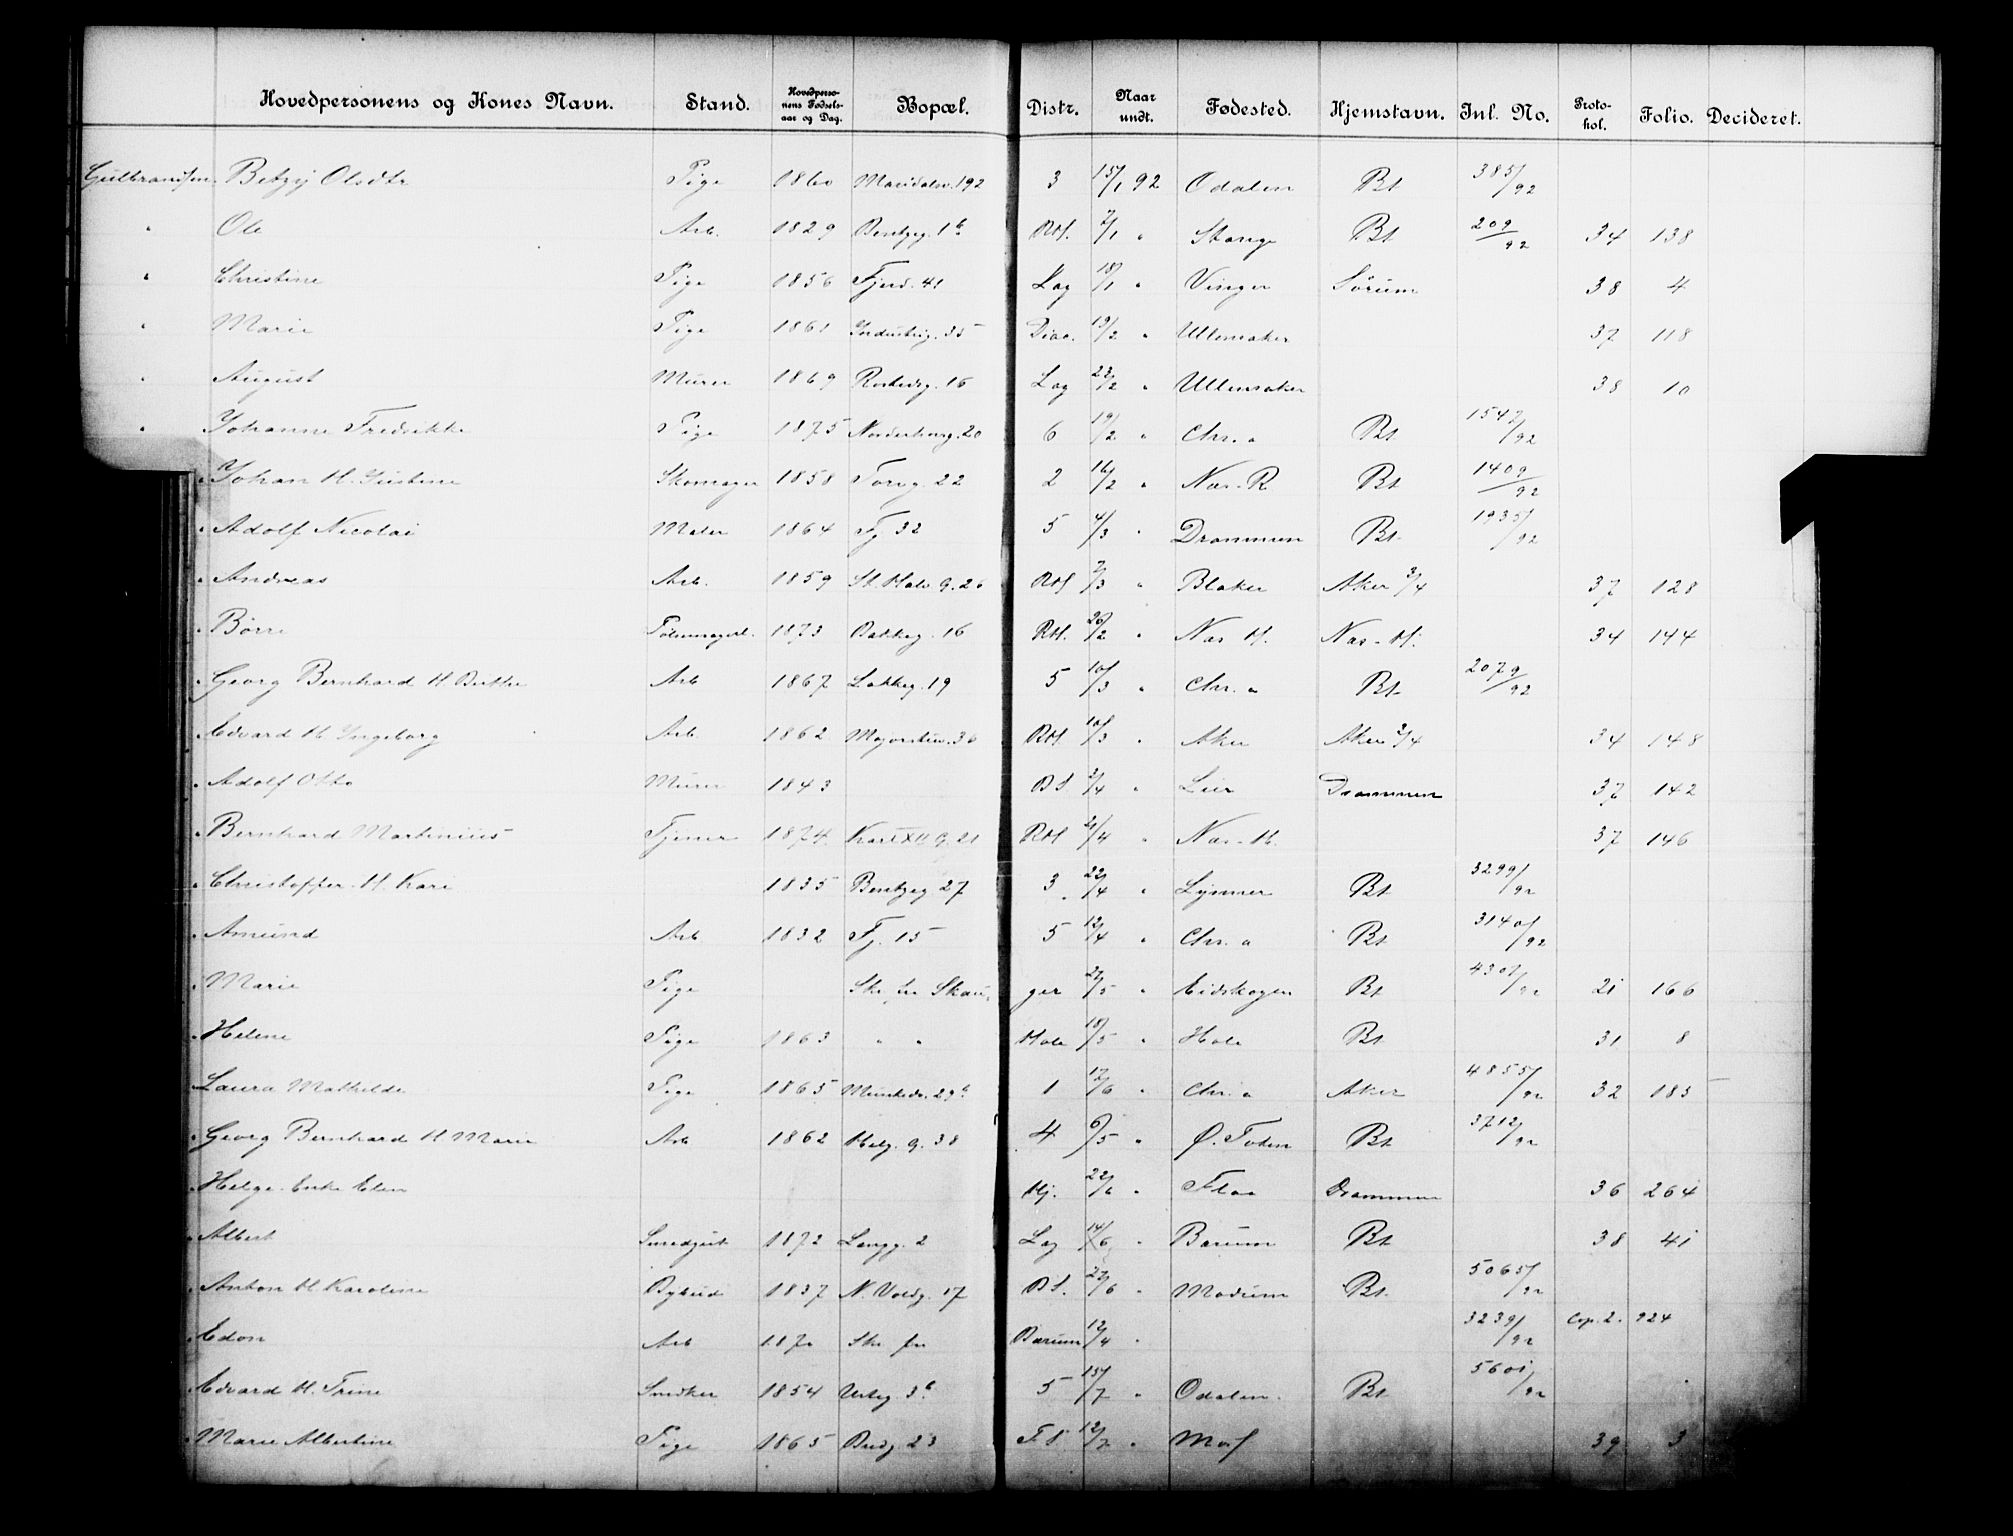 Hovedpersonens og Kones Navn. Stand. Hovedperso-nens Fødsels-aar og Dag. Bopæl. Distr. Naar undt. Fødested. Hjemstavn. Inl. No. Proto-kol. Folio. Decideret.
Gulbrandsen Betzy Olsdtr Pige 1860 Maridalsv. 192 3 15/1 92 Odalen Bt 385/92
" Ole Arb. 1829 Bentzeg. 1b RM. 7/1 " Stange Bt 209/92 34 138
" Christine Pige 1856 Fjerd. 41 Lag 18/1 " Vinger Sørum 38 4
" Marie Pige 1861 Industrig. 35 Diac. 19/2 " Ullensaker 37 118
" August Murer 1869 16 Lag 22/2 " Ullensaker 38 10
" Johanne Fredrikke Pige 1875 20 6 19/2 " Chr. a Bt 1542/92
" Johan H. Justine Skomager 1858 Torvg. 22 2 16/2 " Nas. R Bt 1409/92
" Adolf Nicolai Maler 1864 Fj 32 5 4/3 " Drammen Bt 1935/92
" Andreas Arb. 1859 St. Halv. g. 26 RM 7/3 " Blaker Aker 3/4 37 128
" Børre 1873 Bakkeg. 16 RM. 26/2 " Nas H. Nas. H. 34 144
" Georg Bernhard H Berthe Arb 1867 Lakkeg. 19 5 10/3 " Chr. a Bt 2079/92
" Edvard H Ingeborg Arb. 1862 Majorstuv. 36 RM 10/3 " Aker Aker 3/4 34 148
" Adolf Otto Murer 1843 BS 2/4 " Lier Drammen 37 142
" Bernhard Martinius Tjener 1874 Karl XII g. 21 RM 21/4 " Nas. H. 37 146
" Christoffer. H. Kari 1835 Bentzeg 27 3 22/4 " Bt 3299/92
" Amund Arb 1832 Fj. 15 5 12/4 " Chr. a Bt 3140/92
" Marie Pige Skr. fra Skau- ger 27/5 " Eidskogen Bt 4301/92 21 166
" Helene Pige 1863 " " Hole 18/5 " Hole Bt 31 8
" Laura Mathilde Pige 1865 Munkedv. 29b 1 17/6 " Chr. a Aker 4855/92 32 185
" Georg Bernhard H Marie Arb 1862 Helg. g. 38 4 6/5 " Ø. Toten Bt 3712/92
" Helge. Enke Elen Hj. 22/6 " Flaa Drammen 36 264
" Albert Smedgut 1872 Langg. 2 Lag 14/6 " Bærum Bt 38 41
" Anton H Karoline Bybud 1837 N. Voldg. 17 BS. 22/6 " Modum Bt 5065/92
" Edon Arb 1870 Skr. fra Bærum 12/4 " 3239/92 Cop. 2. 924
" Edvard H. Trine Snedker 1854 Urteg. 3b 5 15/7 " Odalen Bt 5601/92
" Marie Albertine Pige 1865 23 F. S. 12/7 " Moss 39 3